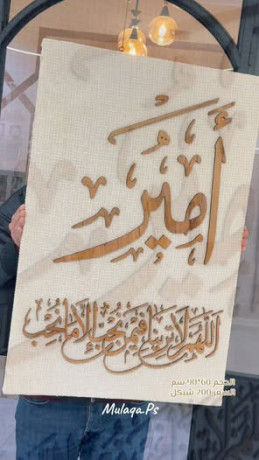 أَمِيْرُ
اللهم لا ترينا فيمن نحب إلا ما نحب
الحجم 90*60 سم
السعر 200 شيكل
Mulaqa.Ps